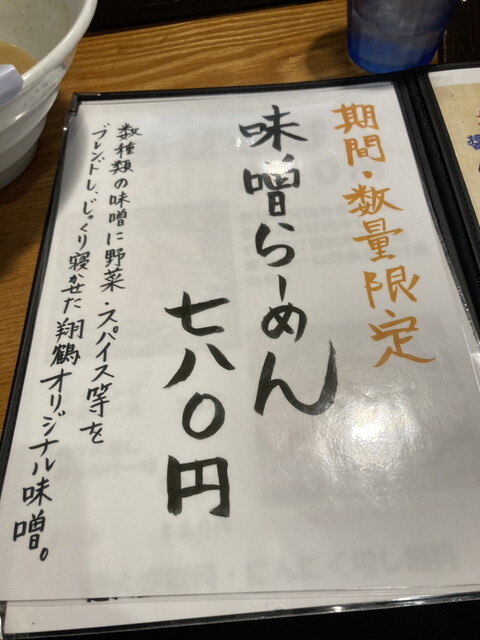 期間・数量限定
味噌らーめん
七八〇円
数種類の味噌に野菜・スパイス等を
ブレンドし、じっくり寝かせた翔鶴オリジナル味噌。